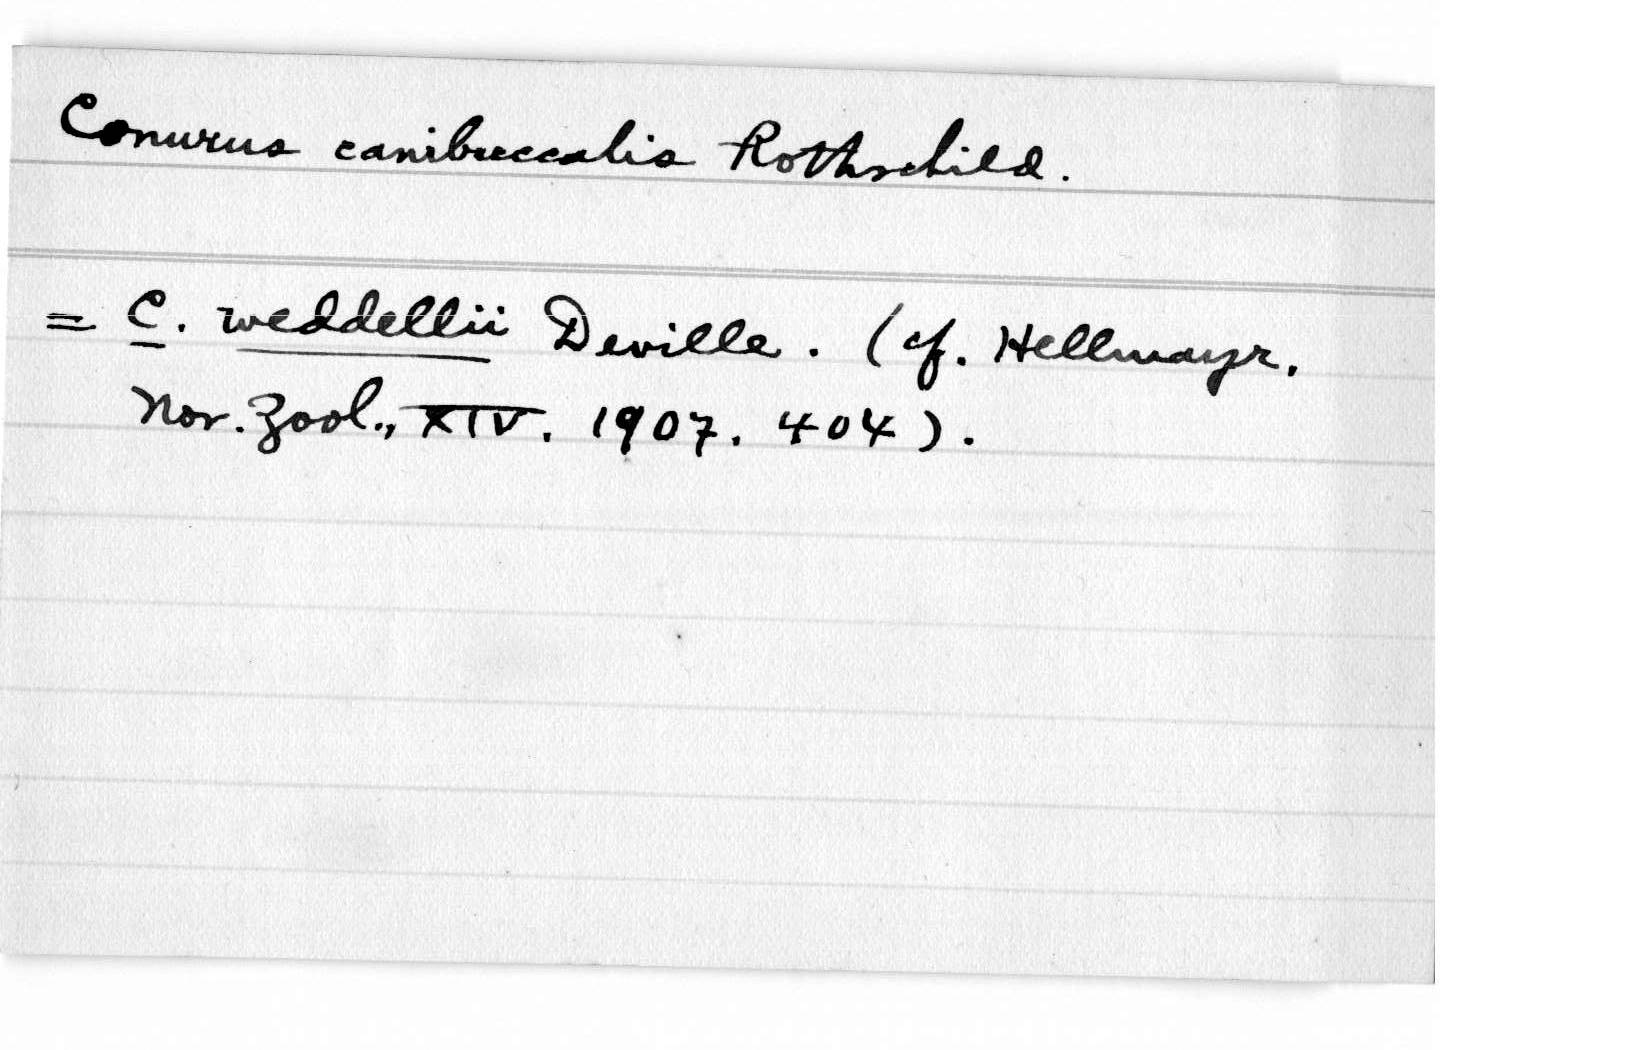 Conurus canibuccalis Rothschild.
= C. weddellii Deville. (cf. Hellmayr,
Nov. Zool., XIV. 1907. 404).